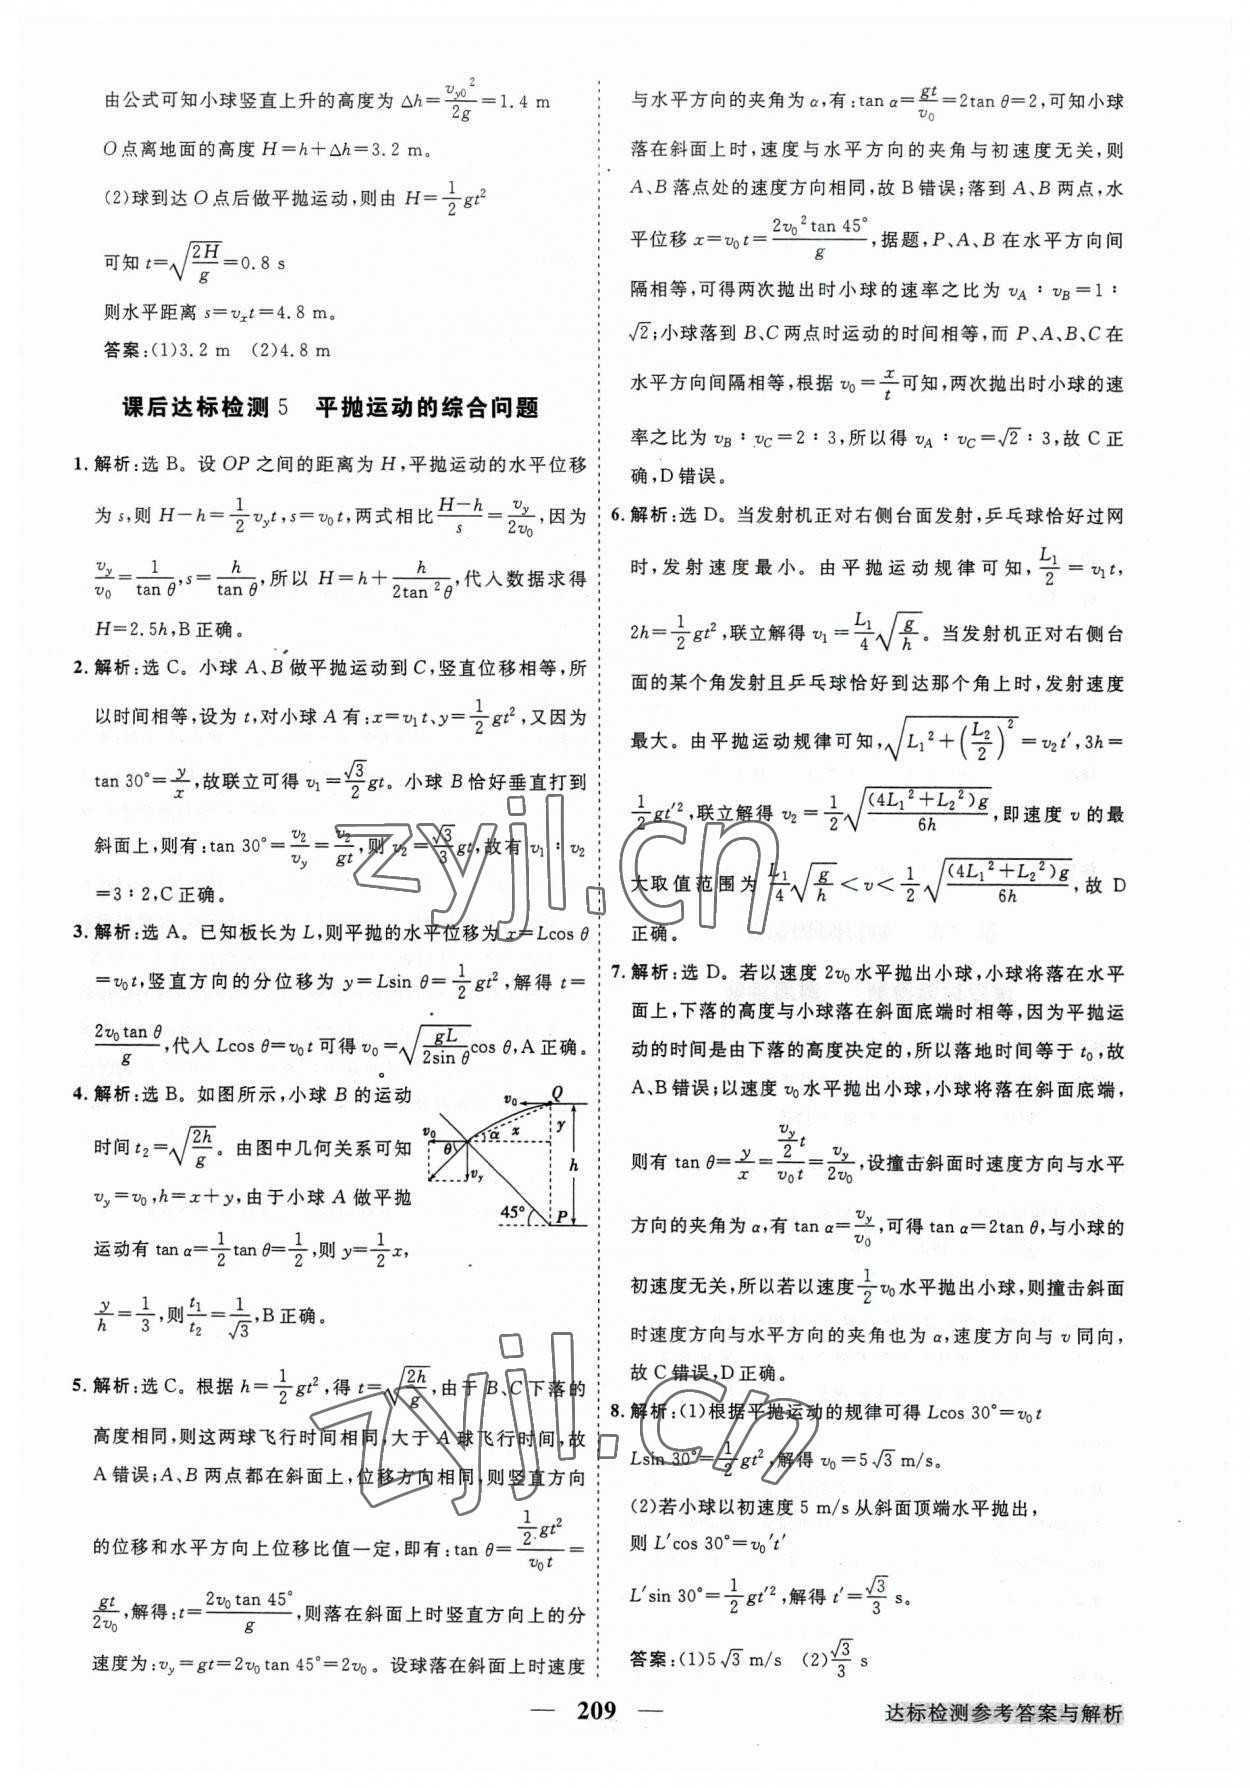 由公式可知小球竖直上升的高度为 Δh=v_{y0}²/2g=1.4 m
O点离地面的高度 H=h+Δh=3.2 m。
(2)球到达 O 点后做平抛运动,则由 H=1/2gt²
可知 t=√(2H/g)=0.8 s
则水平距离 s=vₓt=4.8 m。
答案:(1)3.2 m (2)4.8 m
课后达标检测 5 平抛运动的综合问题
1. 解析:选 B。设 OP 之间的距离为 H,平抛运动的水平位移
为 s,则 H-h=1/2v_y t,s=v₀t,两式相比(H-h)/s=v_y/2v₀,因为
v_y/v₀=1/tan θ,s=h/tan θ,所以 H=h+h/2tan²θ,代入数据求得
H=2.5h,B 正确。
2. 解析:选 C。小球 A、B 做平抛运动到 C,竖直位移相等,所
以时间相等,设为 t,对小球 A 有:x=v₁t、y=1/2gt²,又因为
tan 30°=y/x,故联立可得 v₁=√3/2gt。小球 B 恰好垂直打到
斜面上,则有:tan 30°=v₂/v_y=v₂/gt,则 v₂=√3/3gt,故有 v₁∶v₂
=3∶2,C 正确。
3. 解析:选 A。已知板长为 L,则平抛的水平位移为 x=Lcos θ
=v₀t,竖直方向的分位移为 y=Lsin θ=1/2gt²,解得 t=
2v₀tan θ/g,代入 Lcos θ=v₀t 可得 v₀=√(gL/2sin θ)cos θ,A 正确。
4. 解析:选 B。如图所示,小球 B 的运动
时间 t₂=√(2h/g)。由图中几何关系可知
v_y=v₀,h=x+y,由于小球 A 做平抛
运动有 tan α=1/2tan θ=1/2,则 y=1/2x,
y/h=1/3,则t₁/t₂=1/√3,B 正确。
v₀ Q
v₀ θ α x y
v_y h
45° P
5. 解析:选 C。根据 h=1/2gt²,得 t=√(2h/g),由于 B、C 下落的
高度相同,则这两球飞行时间相同,大于 A 球飞行时间,故
A 错误;A、B 两点都在斜面上,位移方向相同,则竖直方向
的位移和水平方向上位移比值一定,即有:tan θ=(1/2gt²)/(v₀t)=
gt/2v₀,解得:t=2v₀tan 45°/g,则落在斜面上时竖直方向上的分
速度为:v_y=gt=2v₀tan 45°=2v₀。设球落在斜面上时速度
与水平方向的夹角为 α,有:tan α=gt/v₀=2tan θ=2,可知小球
落在斜面上时,速度与水平方向的夹角与初速度无关,则
A、B 落点处的速度方向相同,故 B 错误;落到 A、B 两点,水
平位移 x=v₀t=2v₀²tan 45°/g,据题,P、A、B 在水平方向间
隔相等,可得两次抛出时小球的速率之比为 v_A∶v_B=1∶
√2;小球落到 B、C 两点时运动的时间相等,而 P、A、B、C 在
水平方向间隔相等,根据 v₀=x/t可知,两次抛出时小球的速
率之比为 v_B∶v_C=2∶3,所以得 v_A∶v_C=√2∶3,故 C 正
确,D 错误。
6. 解析:选 D。当发射机正对右侧台面发射,乒乓球恰好过网
时,发射速度最小。由平抛运动规律可知,L₁/2=v₁t,
2h=1/2gt²,联立解得 v₁=L₁/4√(g/h)。当发射机正对右侧台
面的某个角发射且乒乓球恰好到达那个角上时,发射速度
最大。由平抛运动规律可知,√(L₁²+(L₂/2)²)=v₂t′,3h=
1/2gt′²,联立解得 v₂=1/2√((4L₁²+L₂²)g/6h),即速度 v 的最
大取值范围为L₁/4√(g/h)<v<1/2√((4L₁²+L₂²)g/6h),故 D
正确。
7. 解析:选 D。若以速度 2v₀ 水平抛出小球,小球将落在水平
面上,下落的高度与小球落在斜面底端时相等,因为平抛运
动的时间是由下落的高度决定的,所以落地时间等于 t₀,故
A、B 错误;以速度 v₀水平抛出小球,小球将落在斜面底端,
则有 tan θ=y/x=(v_y/2 t)/(v₀t)=v_y/2v₀,设撞击斜面时速度方向与水平
方向的夹角为 α,有 tan α=v_y/v₀,可得 tan α=2tan θ,与小球的
初速度无关,所以若以速度1/2v₀水平抛出小球,则撞击斜面
时速度方向与水平方向的夹角也为 α,速度方向与 v 同向,
故 C 错误,D 正确。
8. 解析:(1)根据平抛运动的规律可得 Lcos 30°=v₀t
Lsin 30°=1/2gt²,解得 v₀=5√3 m/s。
(2)若小球以初速度 5 m/s 从斜面顶端水平抛出,
则 L′cos 30°=v₀′t′
L′sin 30°=1/2gt′²,解得 t′=√3/3 s。
答案:(1)5√3 m/s (2)√3/3 s
— 209 —
达标检测参考答案与解析
zyjl.cn
zyjl.cn